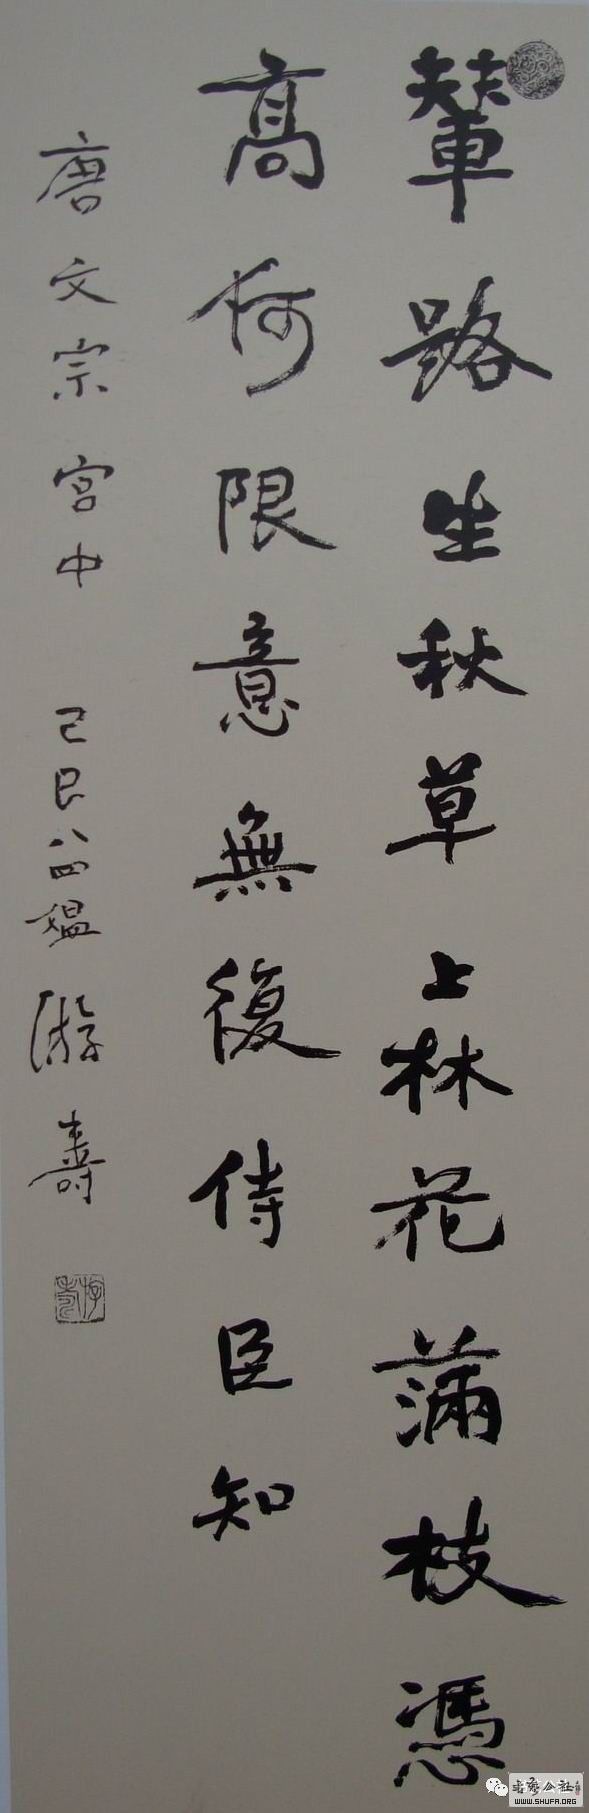 輦路生秋草上林花滿枝憑
高何限意無復侍臣知
唐文宗宮中 己巳八四媪游壽
游壽
书艺公社
www.SHUFA.ORG